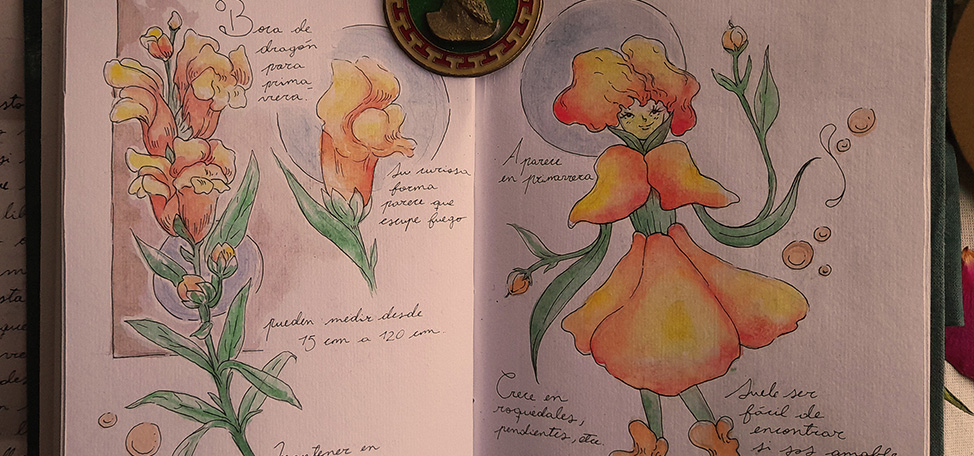 Boca de
dragón
para
prima-
vera.
Su curiosa
forma
parece que
escupe fuego
pueden medir desde
15 cm a 120 cm.
mantener en
Aparece
en primavera
Crece en
roquedales,
pendientes, etc.
Suele ser
fácil de
encontrar
si sos amable